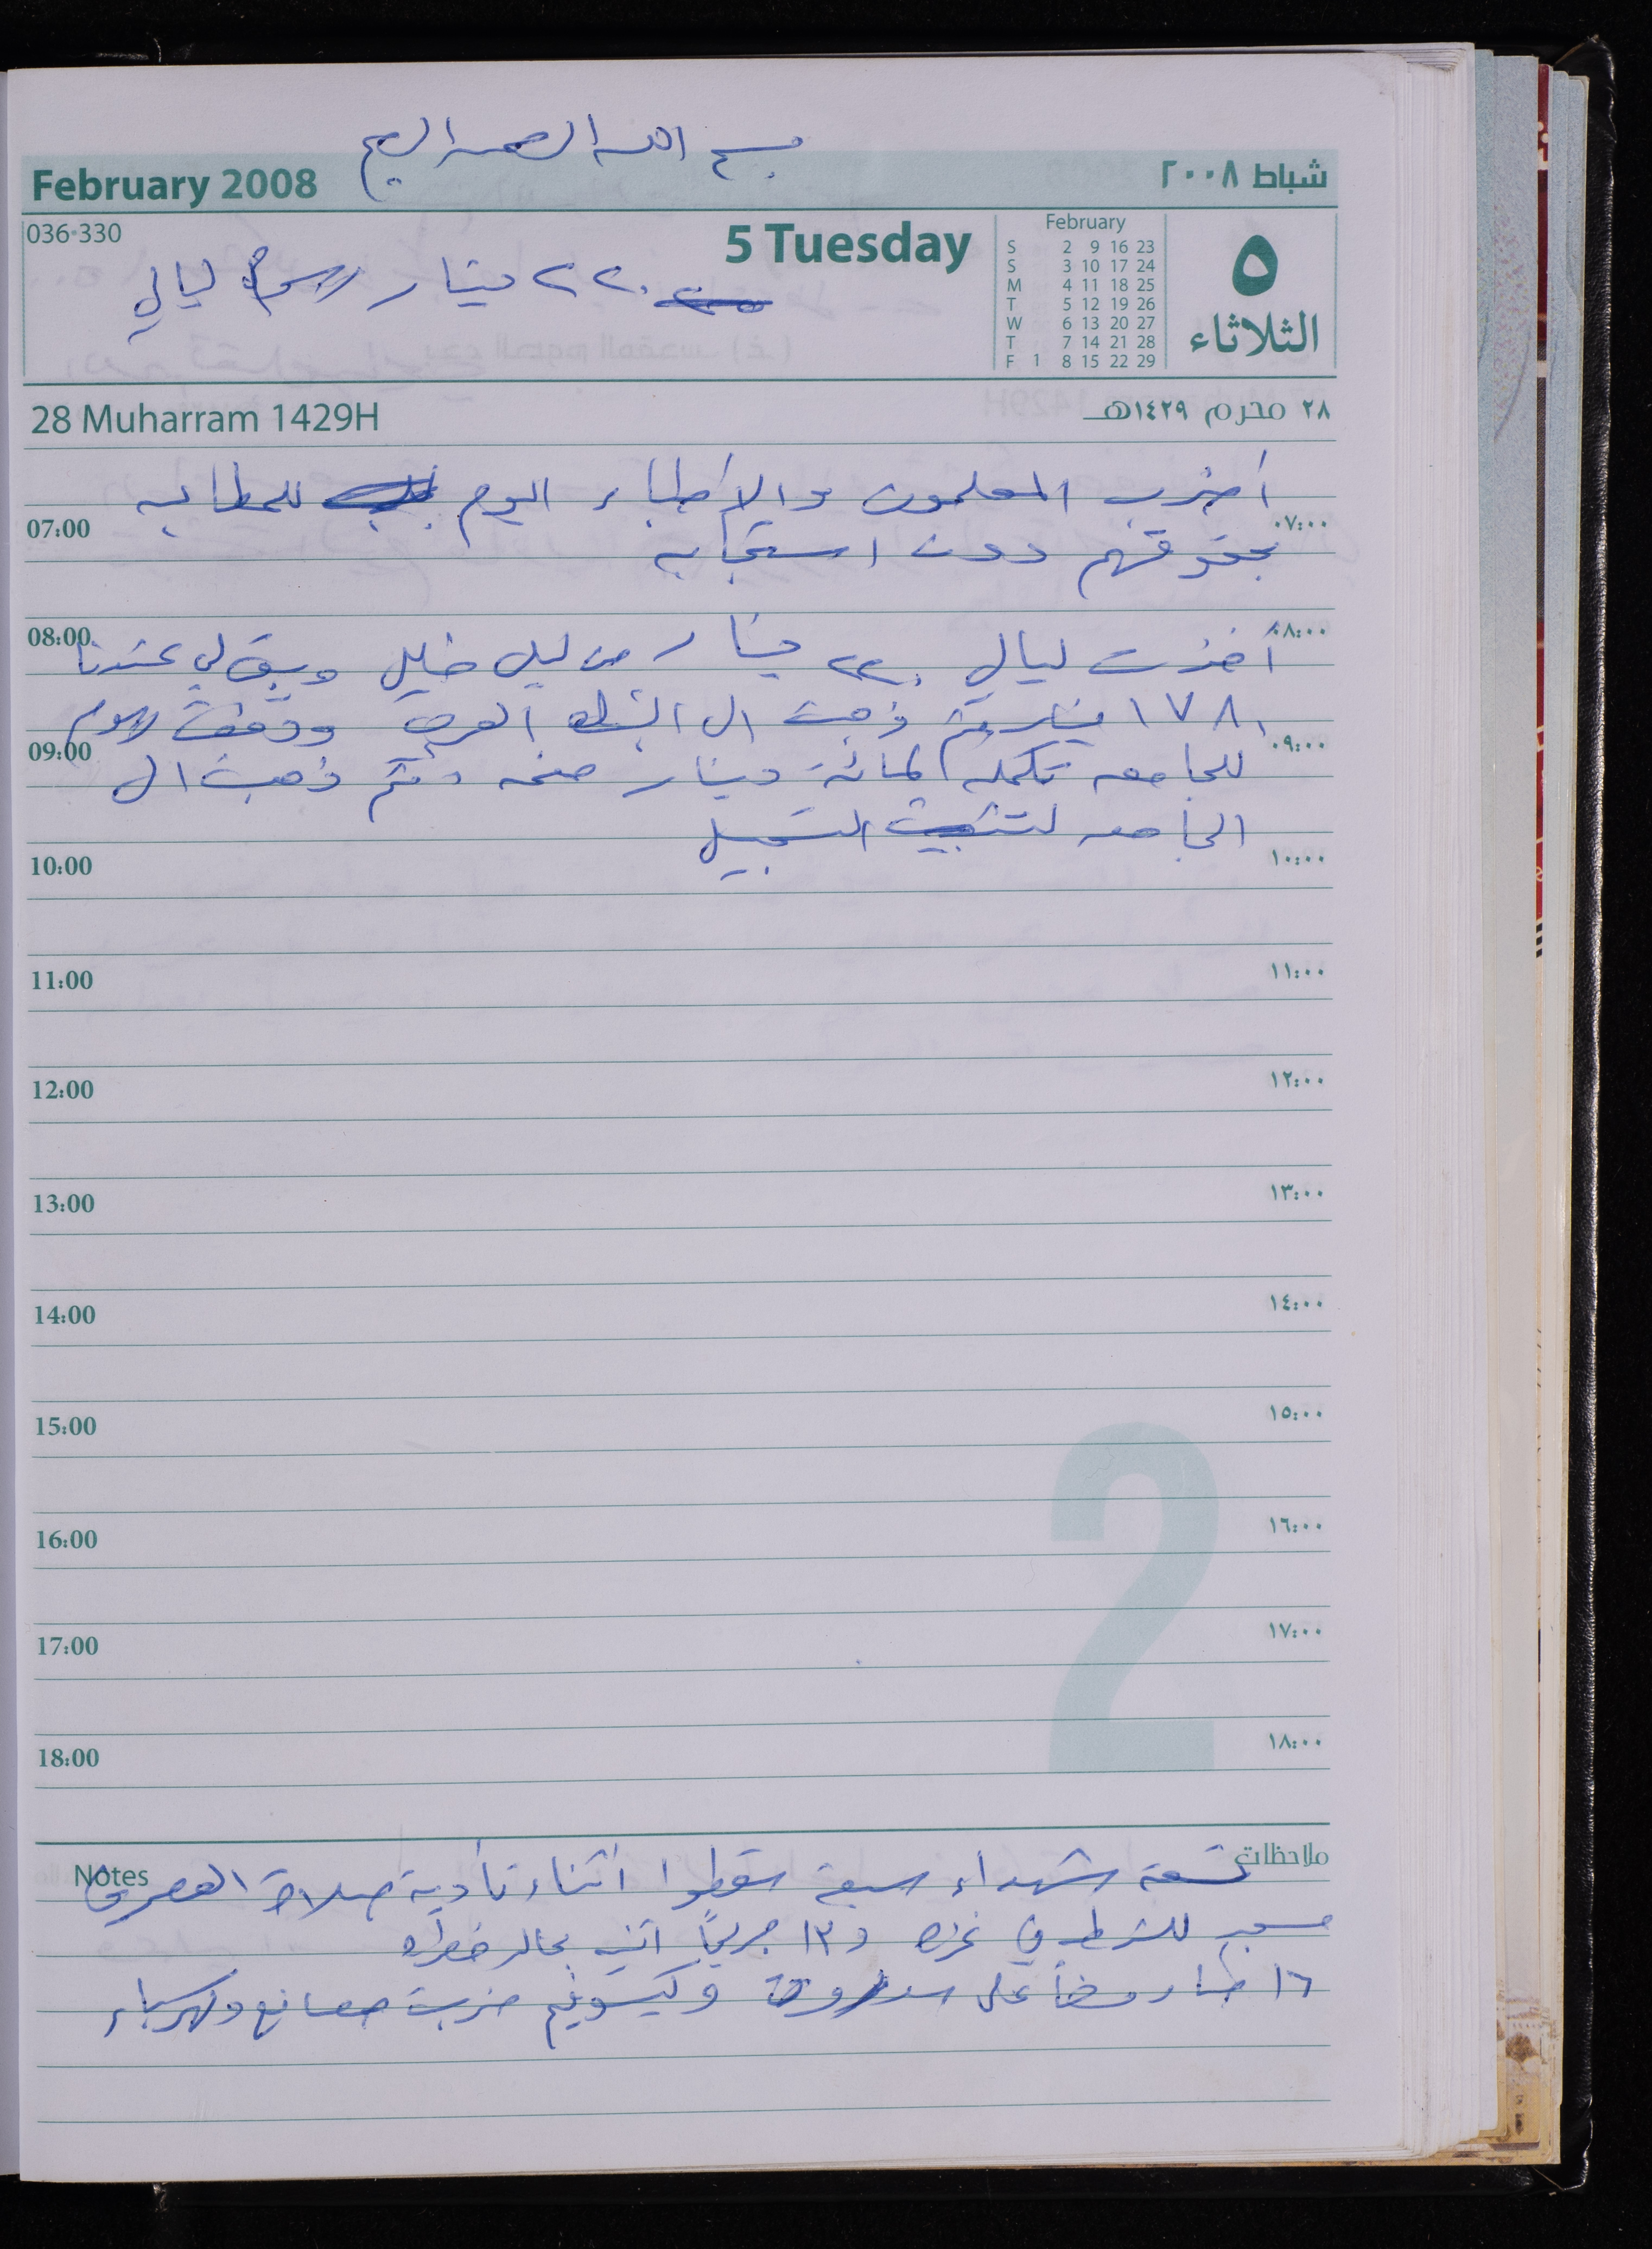 بسم الله الرحمن الرحيم
February 2008
شباط ٢٠٠٨
036-330
5 Tuesday
February
S 2 9 16 23
S 3 10 17 24
M 4 11 18 25
T 5 12 19 26
W 6 13 20 27
T 7 14 21 28
F 1 8 15 22 29
٥
الثلاثاء
٢٢٠ دينار رسوم ليالي
28 Muharram 1429H
٢٨ محرم ١٤٢٩هـ
أضرب المعلمون والاطباء اليوم للمطالبه
07:00 ٠٧:٠٠
بحقوقهم دون استجابه
08:00 ٠٨:٠٠
أخذت ليالي ٢٢٠ دينار من ليل خليل وبقي لي عندنا
١٧٨٠ دينار ثم ذهبت الى البنك العربي ودفعت رسوم
09:00 ٠٩:٠٠
للجامعه تكملة لمائة دينار منحه وثم ذهبت الى
الجامعه لتثبيت التسجيل
10:00 ١٠:٠٠
11:00 ١١:٠٠
12:00 ١٢:٠٠
13:00 ١٣:٠٠
14:00 ١٤:٠٠
15:00 ١٥:٠٠
16:00 ١٦:٠٠
17:00 ١٧:٠٠
18:00 ١٨:٠٠
2
Notes ملاحظات
تسعة شهداء سبعة سقطوا اثناء تأدية صلاة العصر في
مسجد للشرطه في غزه و١٣ جريحاً اثنين بحاله خطره
١٦ صاروخاً على سدروت وكيسوفيم ضربت مصانع وكهرباء